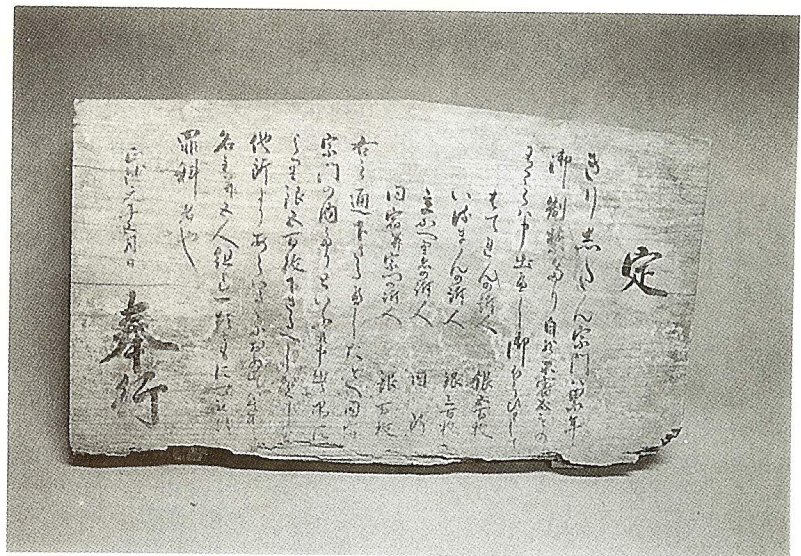 定
きりしたん宗門ハ累年
御制禁たり自然不審成もの
これあらハ申出へし御ほうひとして
はてれんの訴人 銀五百枚
いるまんの訴人 銀三百枚
立かへり者の訴人 同断
同宿并宗門の訴人 銀百枚
右之通下さるへしたとへ同宿
宗門の内たりといふとも申出る品に
より銀五百枚下さるへしかくし置
他所よりあらはるゝにおゐてハ其所の
名主并五人組迄一類ともに可被行
罪科者也
正徳元年五月日
奉行